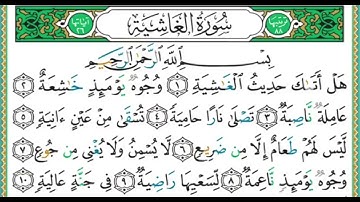 ترتيبها ٨٨ سُورَةُ الغَاشِيَةِ آياتها ٢٦
بِسْمِ اللَّهِ الرَّحْمَٰنِ الرَّحِيمِ
هَلْ أَتَىٰكَ حَدِيثُ ٱلْغَٰشِيَةِ ١ وُجُوهٌ يَوْمَئِذٍ خَٰشِعَةٌ ٢
عَامِلَةٌ نَّاصِبَةٌ ٣ تَصْلَىٰ نَارًا حَامِيَةً ٤ تُسْقَىٰ مِنْ عَيْنٍ ءَانِيَةٍ ٥
لَّيْسَ لَهُمْ طَعَامٌ إِلَّا مِن ضَرِيعٍ ٦ لَّا يُسْمِنُ وَلَا يُغْنِى مِن جُوعٍ ٧
وُجُوهٌ يَوْمَئِذٍ نَّاعِمَةٌ ٨ لِّسَعْيِهَا رَاضِيَةٌ ٩ فِى جَنَّةٍ عَالِيَةٍ ١٠